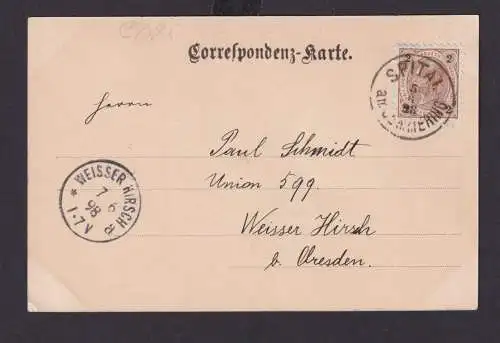 Correspondenz-Karte.
2 2
SPITAL
am SEMMERING
Herrn
Paul Schmidt
Union 599
Weisser Hirsch
b. Dresden.
* WEISSER HIRSCH *
7 6
98
1-7V